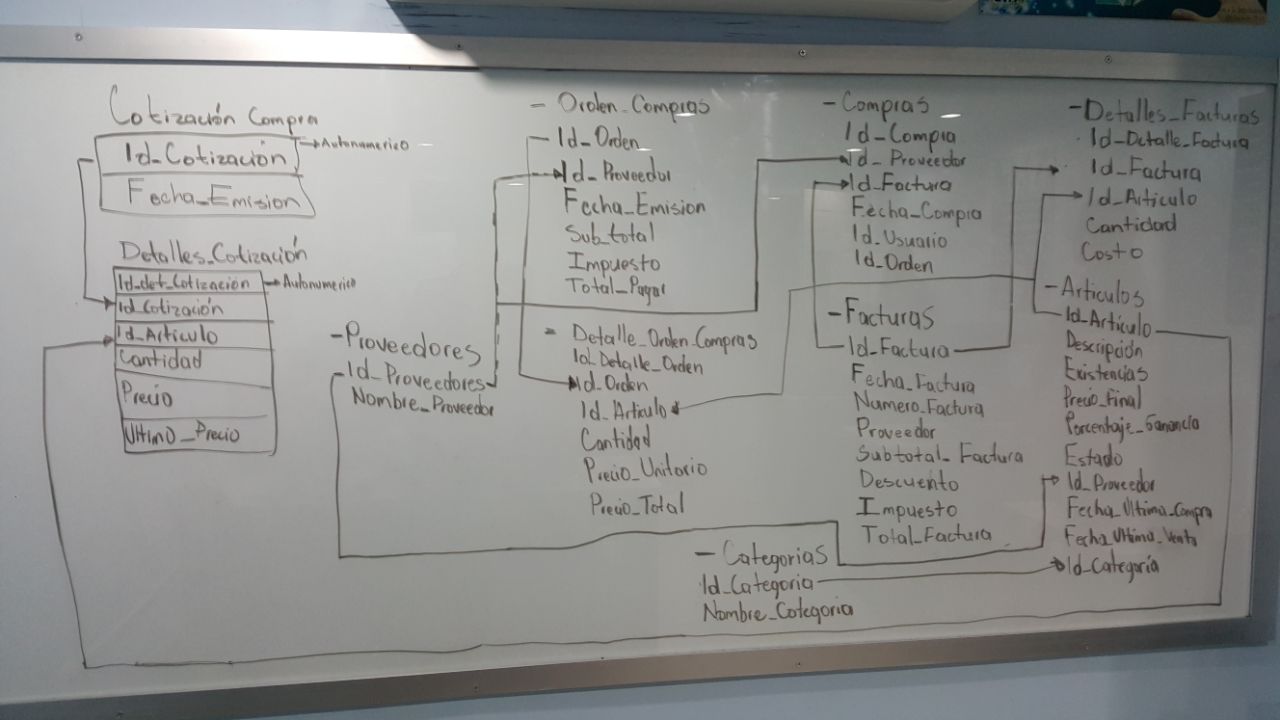 Cotización Compra
Id_Cotización → Autonumerico
Fecha_Emision
Detalles_Cotización
Id_det_Cotización → Autonumerico
Id_Cotización
Id_Articulo
Cantidad
Precio
Ultimo_Precio
- Proveedores
Id_Proveedores
Nombre_Proveedor
- Orden_Compras
Id_Orden
Id_Proveedor
Fecha_Emision
Sub_total
Impuesto
Total_Pagar
- Detalle_Orden_Compras
Id_Detalle_Orden
Id_Orden
Id_Articulo
Cantidad
Precio_Unitario
Precio_Total
- Categorias
Id_Categoria
Nombre_Categoria
- Compras
Id_Compra
Id_Proveedor
Id_Factura
Fecha_Compra
Id_Usuario
Id_Orden
- Facturas
Id_Factura
Fecha_Factura
Numero_Factura
Proveedor
Subtotal_Factura
Descuento
Impuesto
Total_Factura
- Detalles_Facturas
Id_Detalle_Factura
Id_Factura
Id_Articulo
Cantidad
Costo
- Articulos
Id_Artículo
Descripción
Existencias
Precio_Final
Porcentaje_Ganancia
Estado
Id_Proveedor
Fecha_Ultima_Compra
Fecha_Ultima_Venta
Id_Categoría